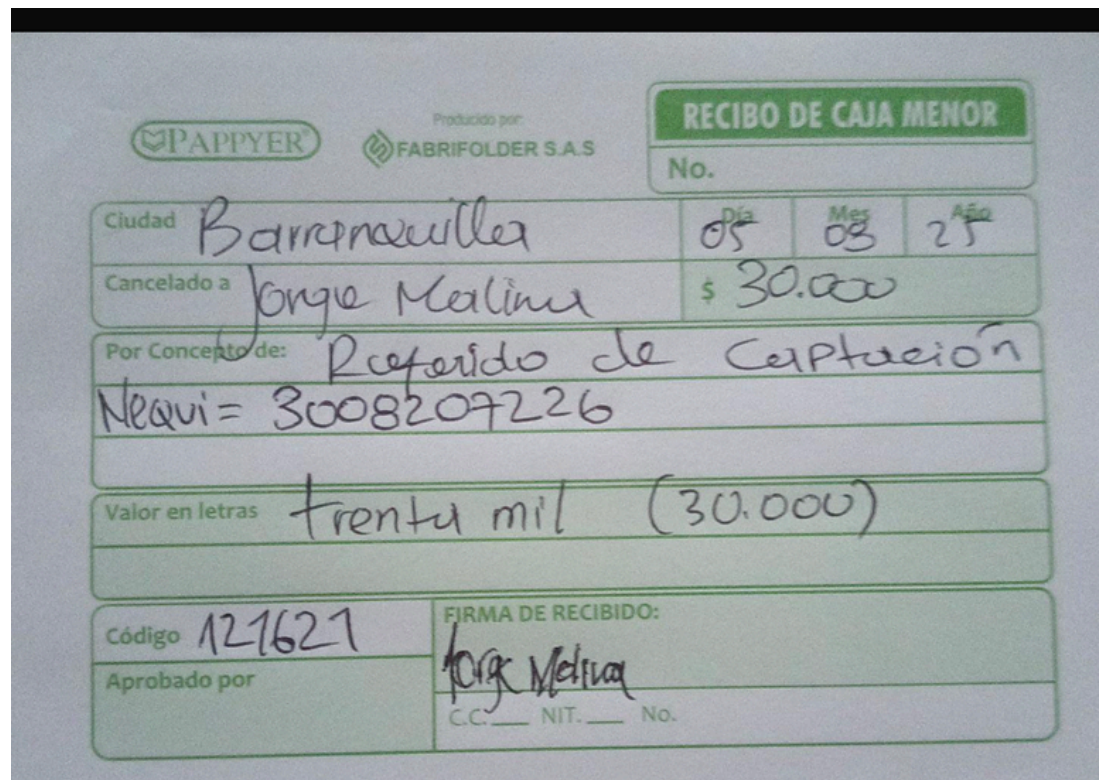 PAPPYER®
Producido por:
FABRIFOLDER S.A.S
RECIBO DE CAJA MENOR
No.
Ciudad Barranquilla
Día Mes Año
05 08 25
Cancelado a Jorge Molina $ 30.000
Por Concepto de: Referido de Captación
Nequi = 3008207226
Valor en letras trenta mil (30.000)
Código 121621
FIRMA DE RECIBIDO:
Jorge Molina
Aprobado por
C.C. ___ NIT. ___ No.